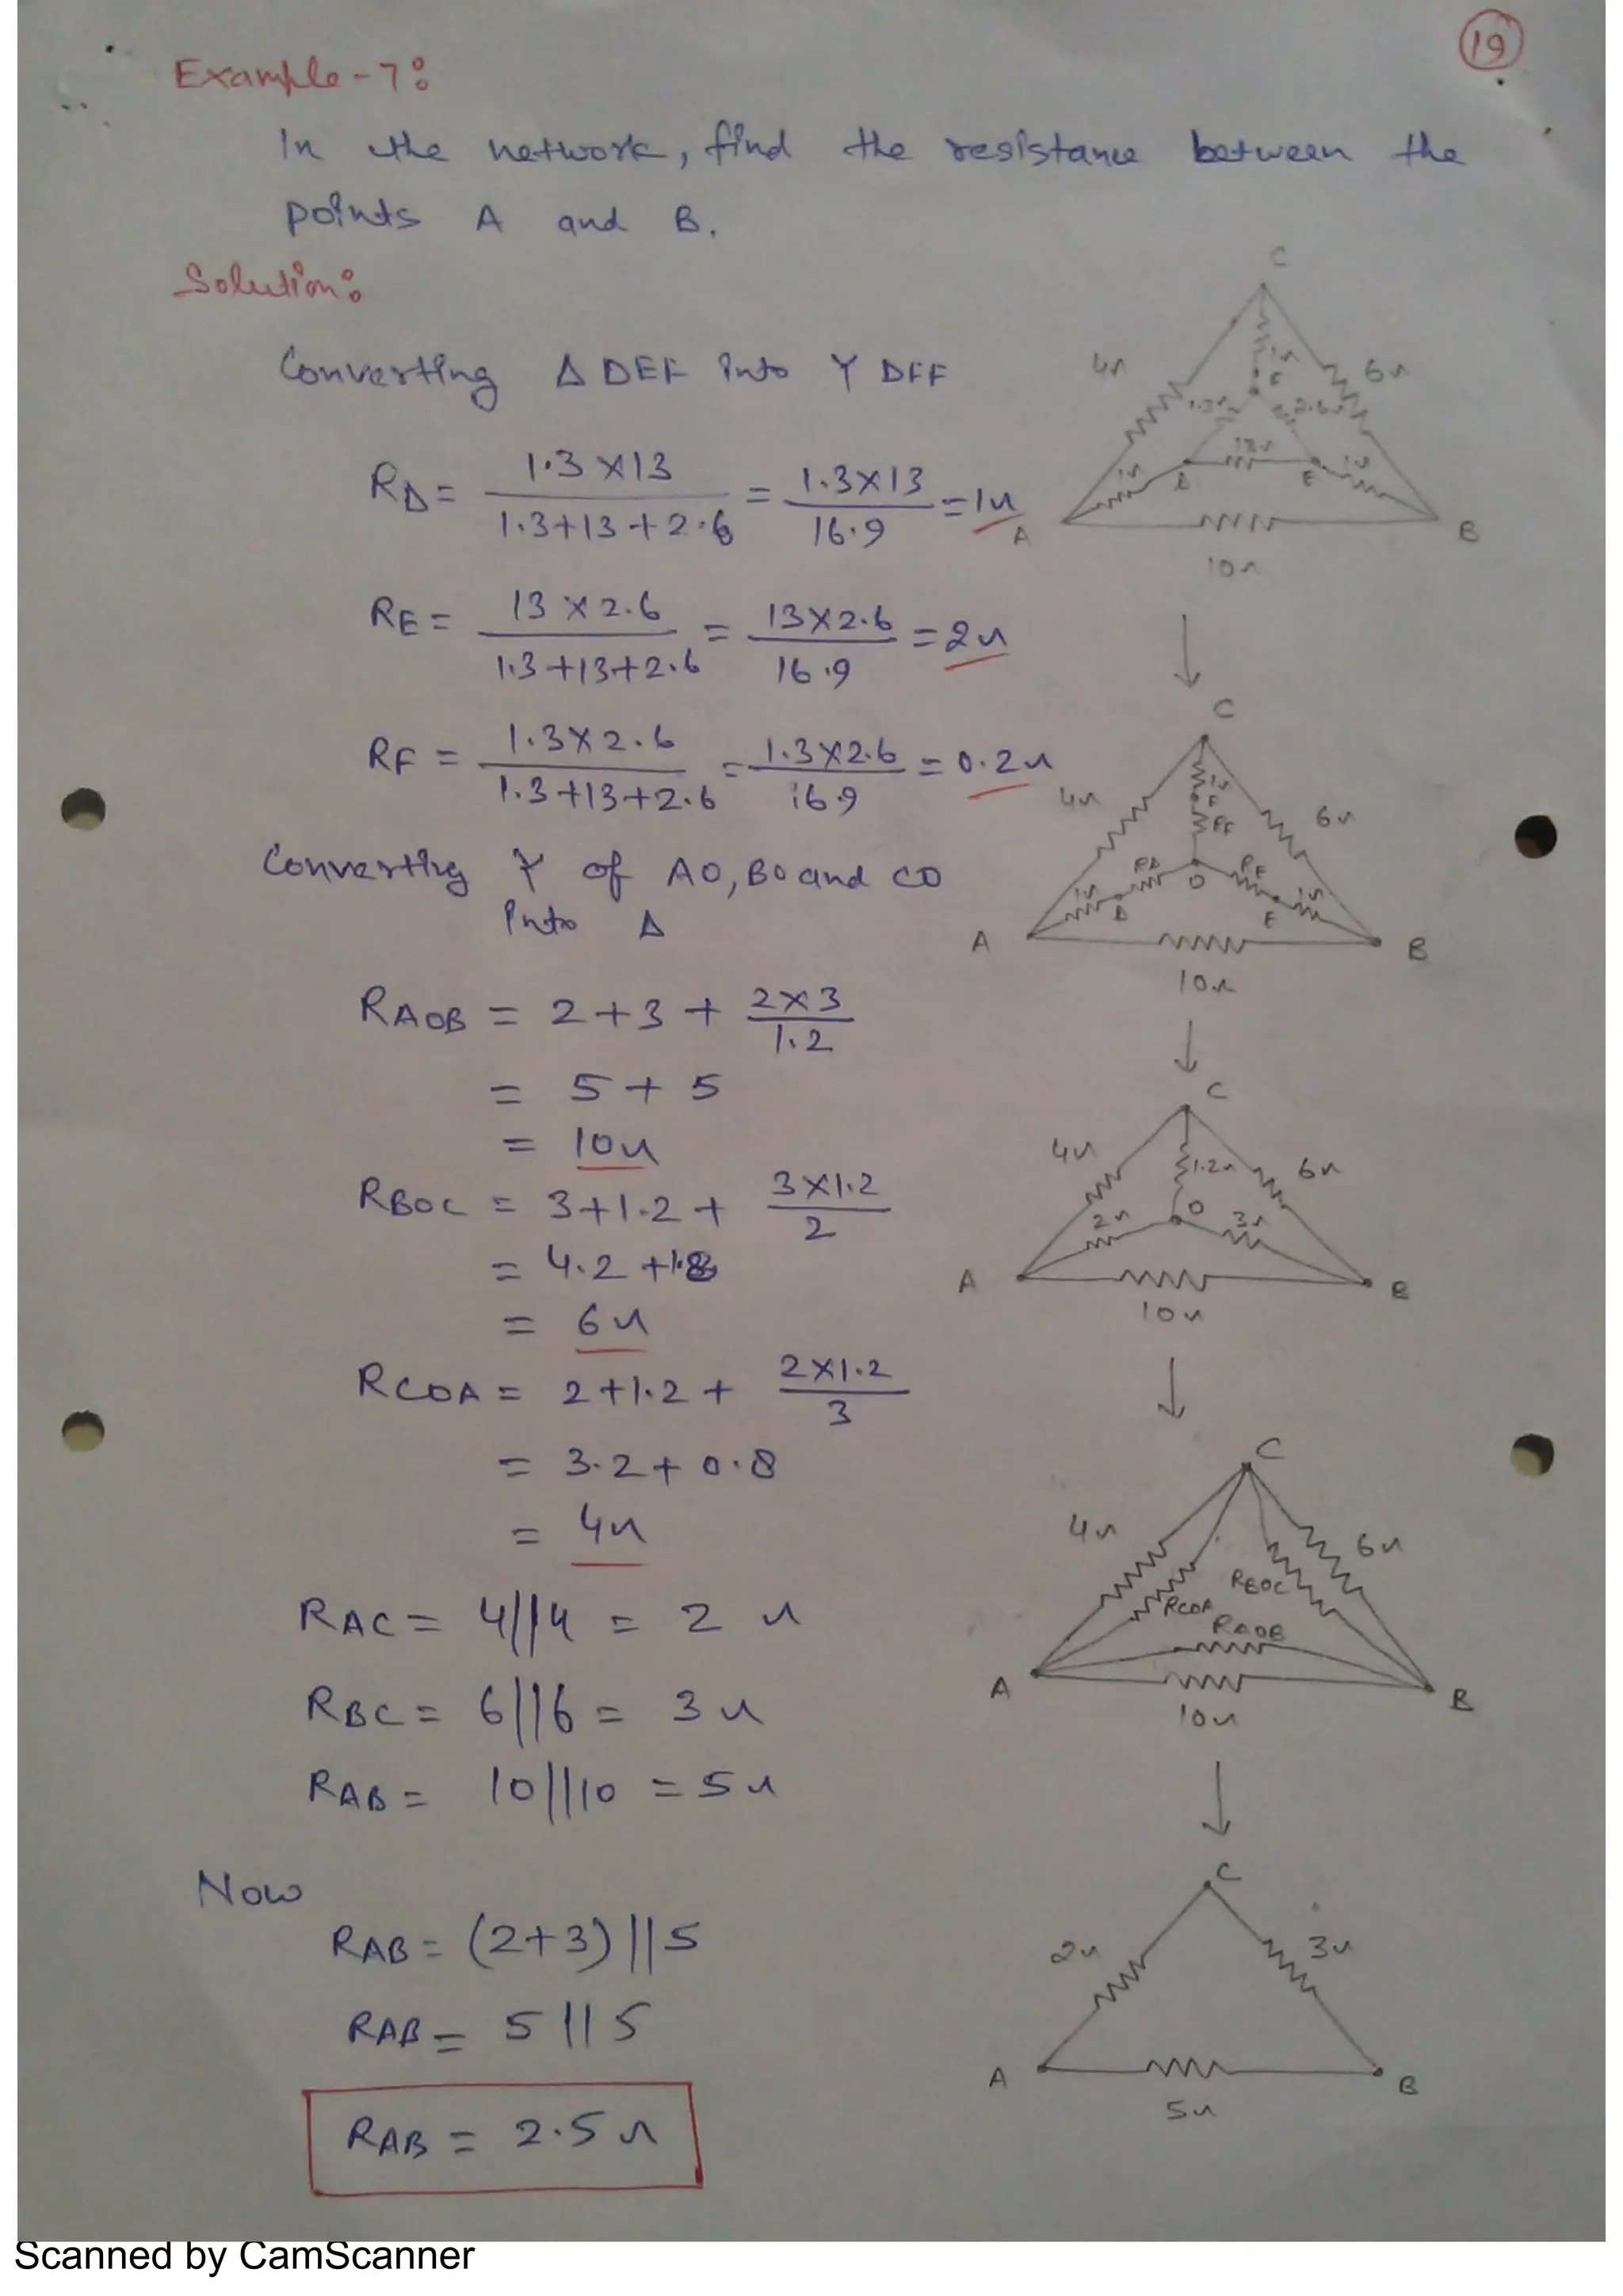 19
Example-7:
In the network, find the resistance between the
points A and B.
Solution:
Converting Δ DEF into Y DFF
RD = 1.3×13 / 1.3+13+2.6 = 1.3×13 / 16.9 = 1Ω
RE = 13×2.6 / 1.3+13+2.6 = 13×2.6 / 16.9 = 2Ω
RF = 1.3×2.6 / 1.3+13+2.6 = 1.3×2.6 / 16.9 = 0.2Ω
Converting Y of AO, BO and CO
into Δ
RAOB = 2+3+ 2×3 / 1.2
= 5+5
= 10Ω
RBOC = 3+1.2+ 3×1.2 / 2
= 4.2+1.8
= 6Ω
RCOA = 2+1.2+ 2×1.2 / 3
= 3.2+0.8
= 4Ω
RAC = 4||4 = 2Ω
RBC = 6||6 = 3Ω
RAB = 10||10 = 5Ω
Now
RAB = (2+3)||5
RAB = 5||5
RAB = 2.5Ω
C
4Ω 1Ω 6Ω
F
1.3Ω 2.6Ω
13Ω
1Ω D E 1Ω
A B
10Ω
C
4Ω 1Ω 6Ω
F
RF
RD O RE
1Ω D E 1Ω
A B
10Ω
C
4Ω 1.2Ω 6Ω
2Ω O 3Ω
A B
10Ω
C
4Ω 6Ω
RCOA RBOC
RAOB
A B
10Ω
C
2Ω 3Ω
A B
5Ω
Scanned by CamScanner